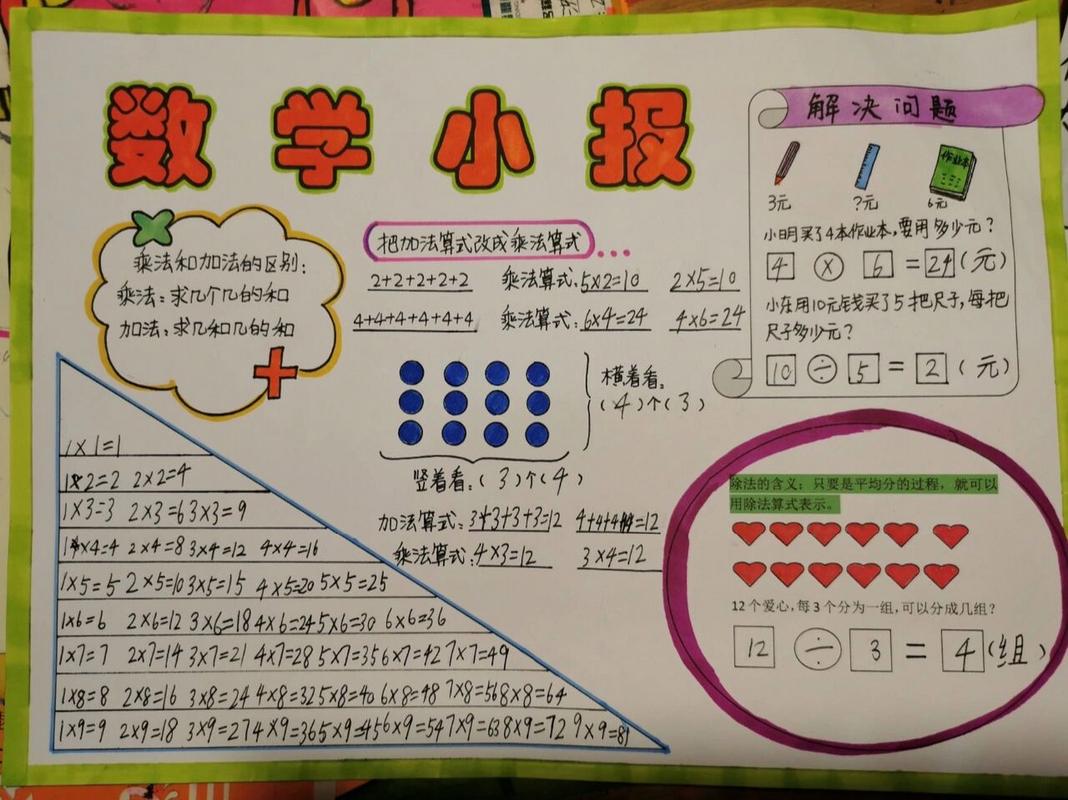 数学小报
乘法和加法的区别:
乘法:求几个几的和
加法:求几和几的和
把加法算式改成乘法算式...
2+2+2+2+2 乘法算式:5×2=10 2×5=10
4+4+4+4+4+4 乘法算式:6×4=24 4×6=24
横着看:
(4)个(3)
竖着看:(3)个(4)
加法算式:3+3+3+3=12 4+4+4=12
乘法算式:4×3=12 3×4=12
解决问题
作业本
3元 ?元 6元
小明买了4本作业本,要用多少元?
4 × 6 = 24 (元)
小东用10元钱买了5把尺子,每把
尺子多少元?
10 ÷ 5 = 2 (元)
1×1=1
1×2=2 2×2=4
1×3=3 2×3=6 3×3=9
1×4=4 2×4=8 3×4=12 4×4=16
1×5=5 2×5=10 3×5=15 4×5=20 5×5=25
1×6=6 2×6=12 3×6=18 4×6=24 5×6=30 6×6=36
1×7=7 2×7=14 3×7=21 4×7=28 5×7=35 6×7=42 7×7=49
1×8=8 2×8=16 3×8=24 4×8=32 5×8=40 6×8=48 7×8=56 8×8=64
1×9=9 2×9=18 3×9=27 4×9=36 5×9=45 6×9=54 7×9=63 8×9=72 9×9=81
除法的含义:只要是平均分的过程,就可以
用除法算式表示。
12个爱心,每3个分为一组,可以分成几组?
12 ÷ 3 = 4 (组)